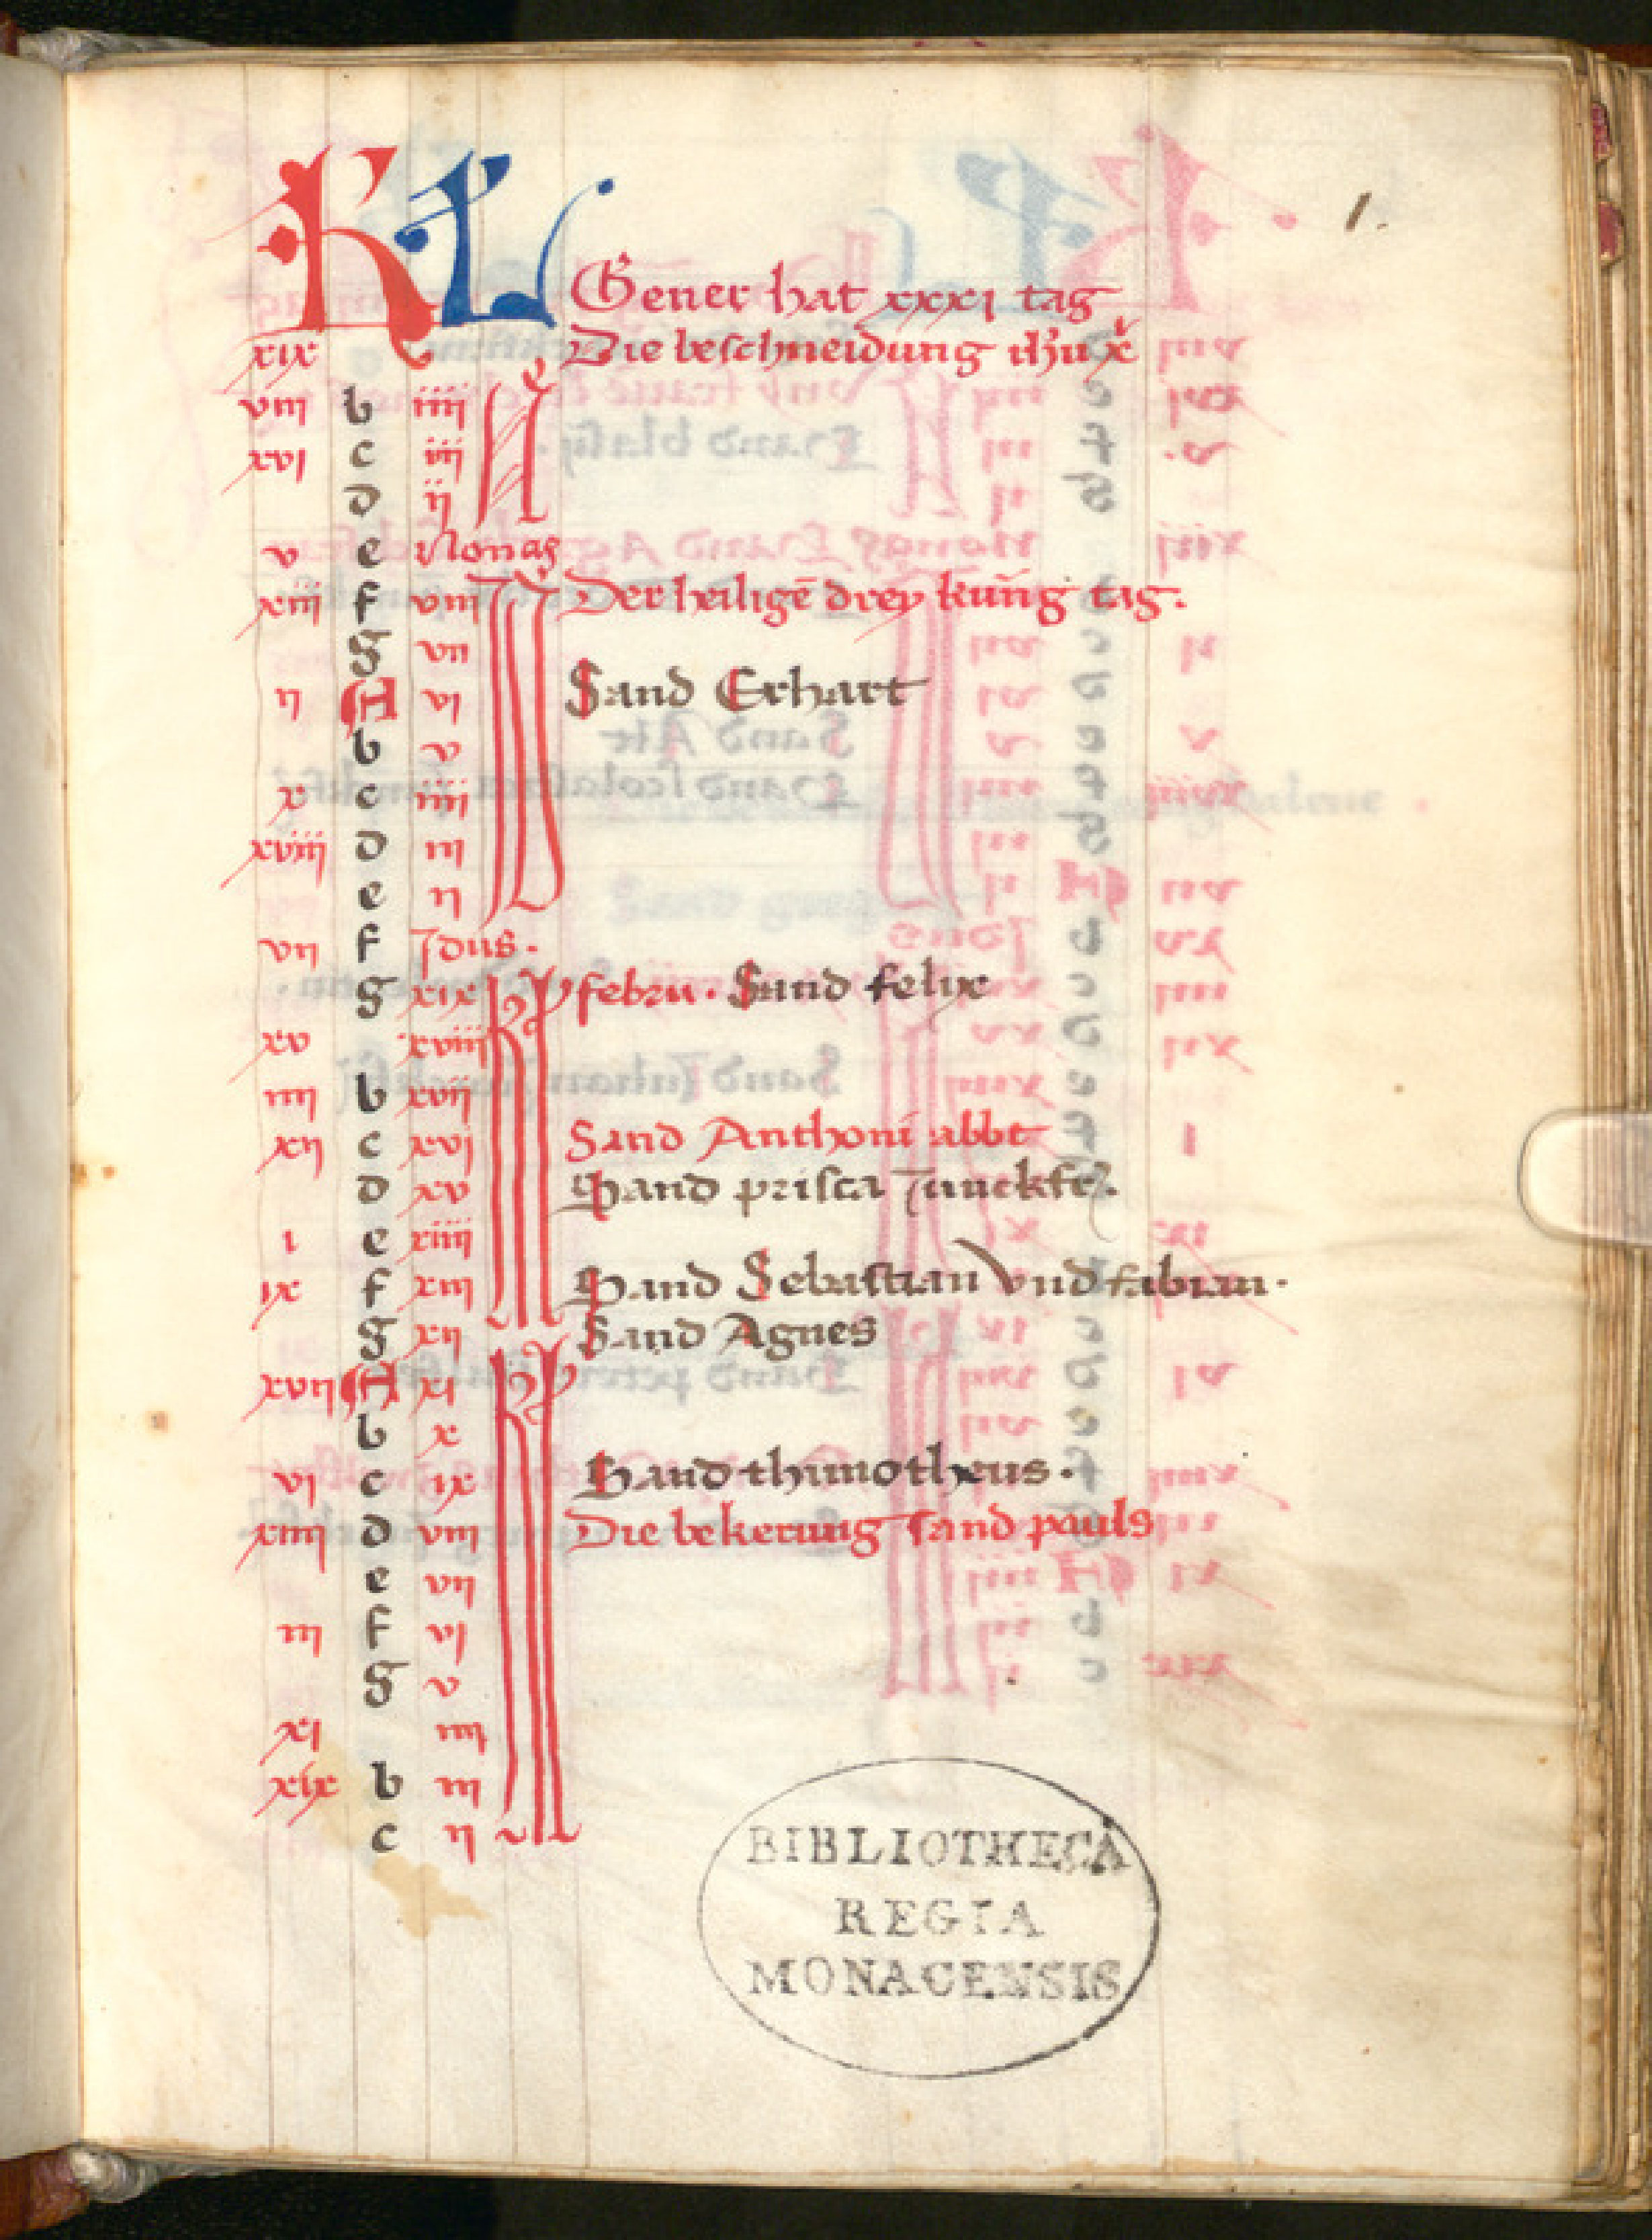 1.
KL Gener hat xxxi tag
xix Die beschneidung ihu x
viii b iiii N
xvi c iii
d ii
v e Nonas
xiii f viii Der heilige drey kunig tag.
g vii
ii A vi Sand Erhart
b v
x c iiii
xviii d iii
e ii
vii f Idus.
g xix kl febru. Sand felix
xv xviii
iiii b xvii
xii c xvi Sand Anthoni abbt
d xv Sand prisca Junckfr.
i e xiiii
ix f xiii Sand Sebastian vnd fabian.
g xii Sand Agnes
xvii A xi kl
b x
vi c ix Sand thimotheus.
xiiii d viii Die bekerung sand pauls
e vii
iii f vi
g v
xi iiii
xix b iii
c ii
BIBLIOTHECA
REGIA
MONACENSIS